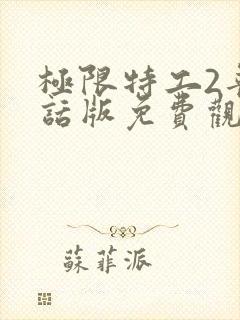 極限特工2
話版免費觀
蘇菲派